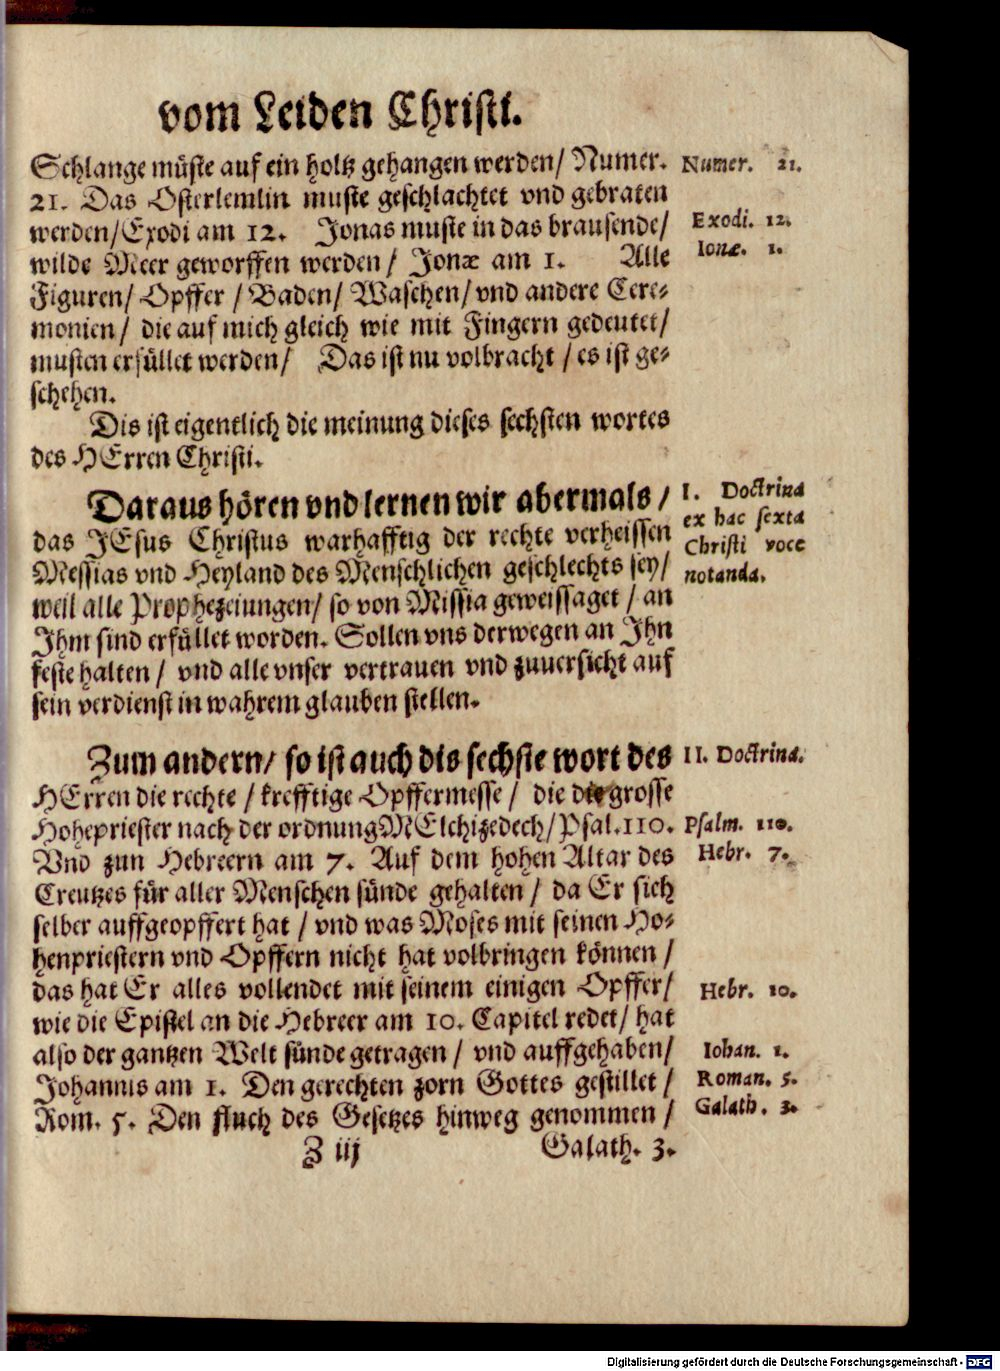 vom Leiden Christi.
Schlange müste auf ein holtz gehangen werden/ Numer.
21. Das Osterlemlin muste geschlachtet vnd gebraten
werden/Exodi am 12. Jonas muste in das brausende/
wilde Meer geworffen werden/ Jonæ am 1. Alle
Figuren/ Opffer / Baden/ Waschen/ vnd andere Cere-
monien/ die auf mich gleich wie mit Fingern gedeutet/
musten erfüllet werden/ Das ist nu volbracht / es ist ge-
schehen.
Dis ist eigentlich die meinung dieses sechsten wortes
des HErren Christi.
Daraus hören vnd lernen wir abermals /
das JEsus Christus warhafftig der rechte verheissen
Messias vnd Heyland des Menschlichen geschlechts sey/
weil alle Prophezeiungen/ so von Missia geweissaget / an
Ihm sind erfüllet worden. Sollen vns derwegen an Ihn
feste halten / vnd alle vnser vertrauen vnd zuuersicht auf
sein verdienst in wahrem glauben stellen.
Zum andern/ so ist auch dis sechste wort des
HErren die rechte / krefftige Opffermesse / die die grosse
Hohepriester nach der ordnung MElchizedech/ Psal.110.
Vnd zun Hebreern am 7. Auf dem hohen Altar des
Creutzes für aller Menschen sünde gehalten / da Er sich
selber auffgeopffert hat / vnd was Moses mit seinen Ho-
henpriestern vnd Opffern nicht hat volbringen können /
das hat Er alles vollendet mit seinem einigen Opffer/
wie die Epistel an die Hebreer am 10. Capitel redet/ hat
also der gantzen Welt sünde getragen / vnd auffgehaben/
Johannis am 1. Den gerechten zorn Gottes gestillet /
Rom. 5. Den fluch des Gesetzes hinweg genommen /
Z iij Galath. 3.
Numer. 21.
Exodi. 12.
Ionæ. 1.
I. Doctrina
ex hac sexta
Christi voce
notanda.
II. Doctrina.
Psalm. 110.
Hebr. 7.
Hebr. 10.
Iohan. 1.
Roman. 5.
Galath. 3.
Digitalisierung gefördert durch die Deutsche Forschungsgemeinschaft - DFG